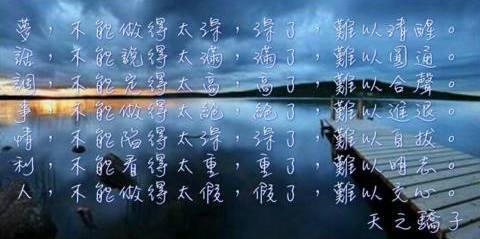 夢，不能做得太深，深了，難以清醒。
話，不能說得太滿，滿了，難以圓通。
調，不能定得太高，高了，難以合聲。
事，不能做得太絕，絕了，難以進退。
情，不能陷得太深，深了，難以自拔。
利，不能看得太重，重了，難以明志。
人，不能做得太假，假了，難以交心。
天之驕子